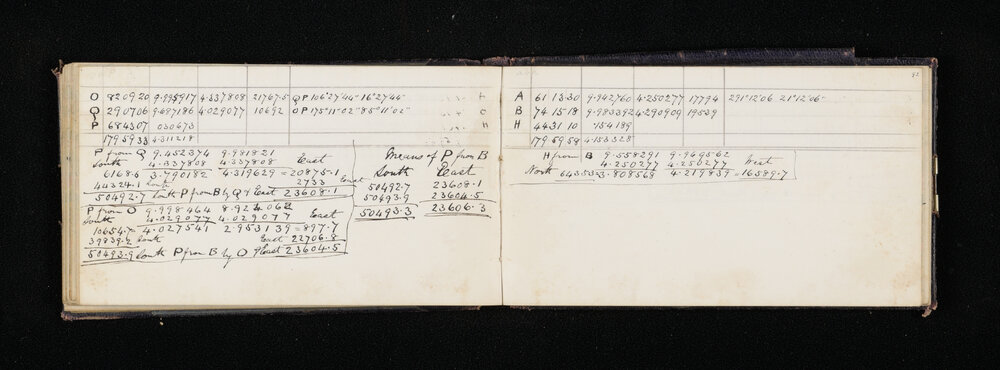 O 82 09 20 9.995917 4.337808 21767.5 QP 106°27'44" 16°27'44"
Q 29 07 06 9.687186 4.029077 10692 OP 175°11'02" 85°11'02"
P 68 43 07 030673
179 59 33 4.311218
P from Q 9.452374 9.981821
South 4.337808 4.337808 East
6168.6 3.790182 4.319629 = 20875.1
44324.1 South 2733 East
50492.7 South P from B by Q & East 23608.1
P from O 9.998464 8.924062
South 4.029077 4.029077 East
10654.7 = 4.027541 2.953139 = 897.7
39839.2 South East 22706.8
50493.9 South P from B by O & East 23604.5
Means of P from B
South East
50492.7 23608.1
50493.9 23604.5
50493.3 23606.3
92
A 61 13 30 9.942760 4.250277 17794 291°12'06" 21°12'06"
B 74 15 18 9.983392 4.290909 19539
H 44 31 10 .154189
179 59 58 4.153328
H from B 9.558291 9.969562
4.250277 4.250277 West
North 6435.3 = 3.808568 4.219839 = 16589.7